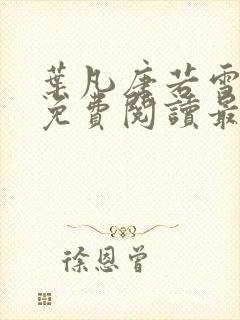 葉凡唐若雪
免費閱讀最
徐恩曾